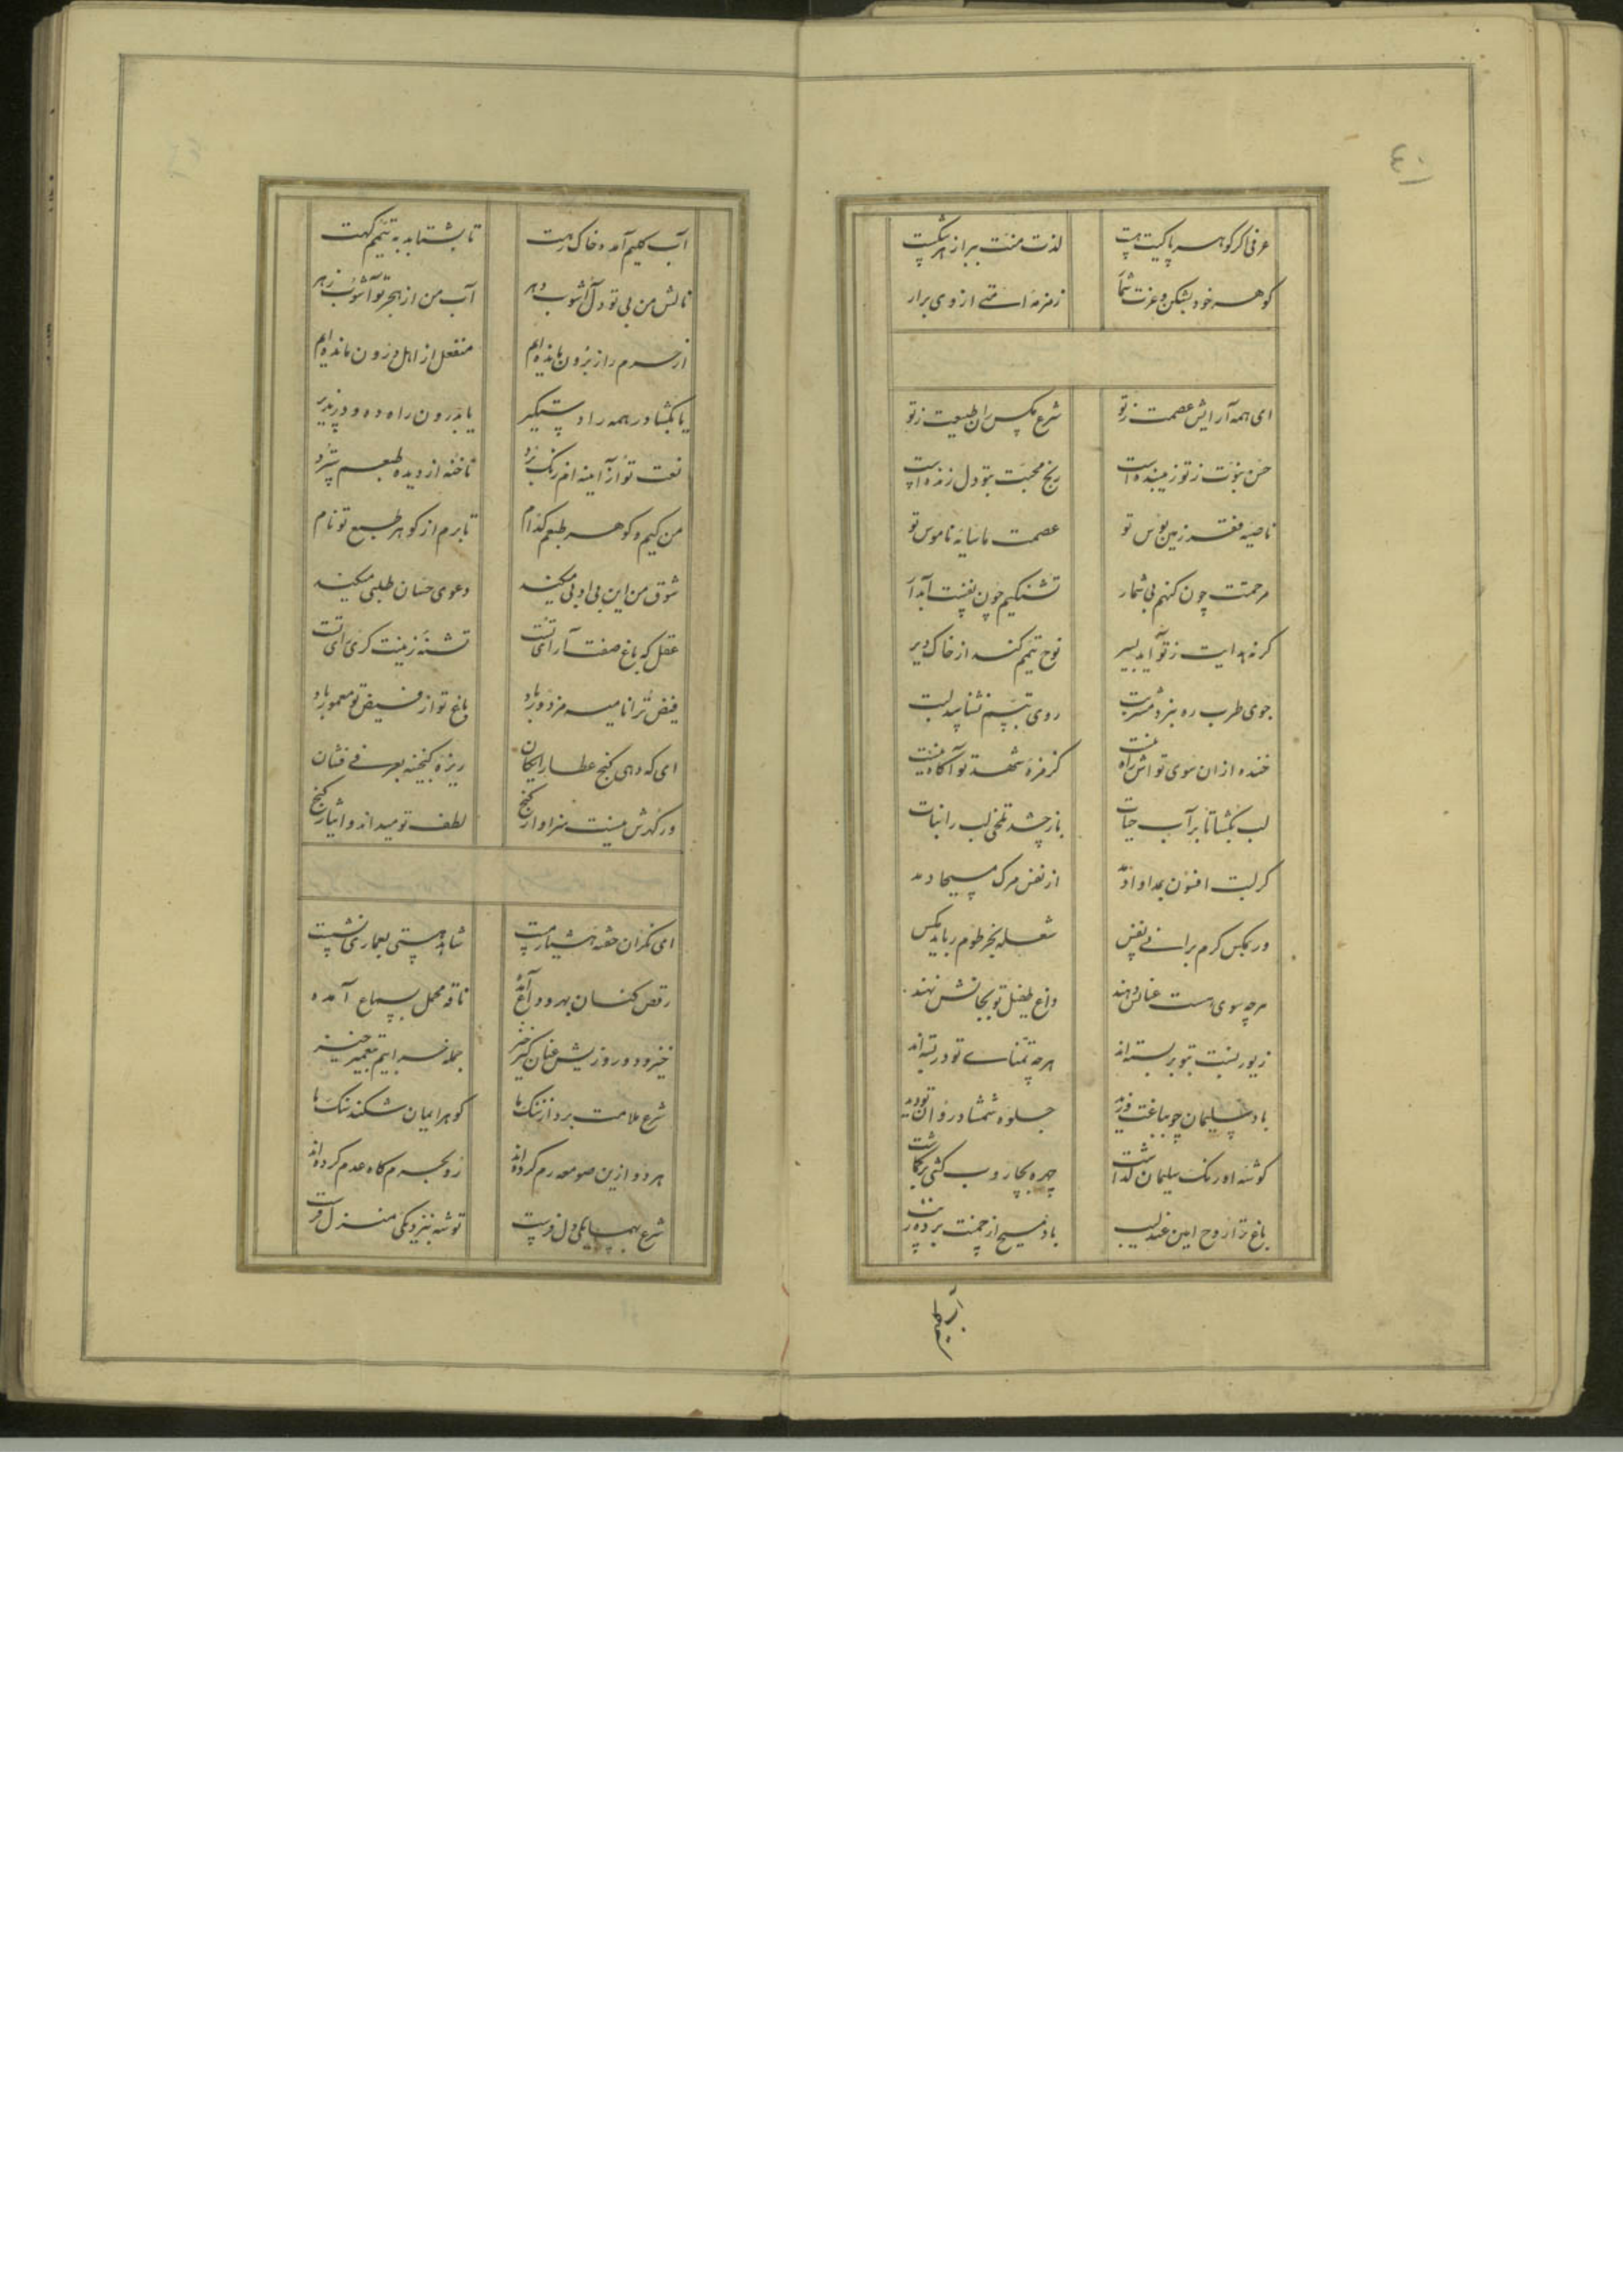 ٤٠
عرفی اگر گوهر پاکیت هست لذت منت ببر از هر شکست
گوهر خود بشکن و عزت شمار زمزمه امتی از وی برار
ای همه آرایش عصمت ز تو شرع مکس ران طبیعت ز تو
حسن نبوت ز تو زیبنده است رنج محبت بتو دل زنده است
ناصیه فقر زمین بوس تو عصمت ما سایه ناموس تو
مرحمتت چون گنهم بی شمار تشنگیم چون نفست آبدار
گر نه هدایت ز تو آید بسیر نوح تیمم کند از خاک دیر
جوی طرب ره نبرد مشربت روی تبسم نشناسد لبت
خنده از ان سوی تو اش راه نیست کز مزه شهد تو آگاه نیست
لب بگشا تا بر آب حیات باز چشد تلخی لب را نبات
گر لبت افسون بمداوا دمد از نفس مرگ مسیحا دمد
ور بمکس گرم برانی نفس شعله بخرطوم رباید مکس
هرچه سوی هست عنانش دهند داغ طفیل تو بجانش نهند
زیور نسبت بتو بر بسته اند هرچه تمنای تو در بسته اند
باد سلیمان چو بباغت وزید جلوه شمشاد روان تو دید
گوشه اورنگ سلیمان گذاشت چهره بجاروب کشی بر گماشت
باغ ترا روح امین عندلیب باد مسیح از چمنت برده
آب کلیم
آب کلیم آمد و خاک رهت تا بشتابد به تیمم گهت
نالش من بی تو دل آشوب دهر آب من از هجر تو آشوب زهر
از حرم راز برون مانده ایم منفعل از اهل درون مانده ایم
یا بگشا در همه را دستگیر یا بدرون راه ده و در پذیر
نعت تو از آینه ام زنگ برد ناخنه از دیده طبعم سترد
من کیم و گوهر طبعم کدام تا برم از گوهر طبع تو نام
شوق من این بی ادبی میکند دعوی حسان طلبی میکند
عقل که باغ صفت آرای تست تشنه زینت گری رای تست
فیض ترا نامیه مزدور باد باغ تو از فیض تو معمور باد
ای که دهی گنج عطا رایگان ریزه گنجینه بعرفی فشان
ور گهرش نیست سزاوار گنج لطف تو میداند و ایثار گنج
ای نگران خفته هشیار مست شاهد هستی بعماری نشست
رقص کنان بهر وداع آمده ناقه محمل بسماع آمده
خیز و درو روزیش عنان گیر خیز جمله خرابیم بتعمیر خیز
شرع ملامت برد از ننگ ما گوهر ایمان شکند سنگ ما
هر دو ازین صومعه رم کرده اند رو بحرم گاه عدم کرده اند
شرع بهمسایگی دل فرست توشه بنزدیکی منزل فرست